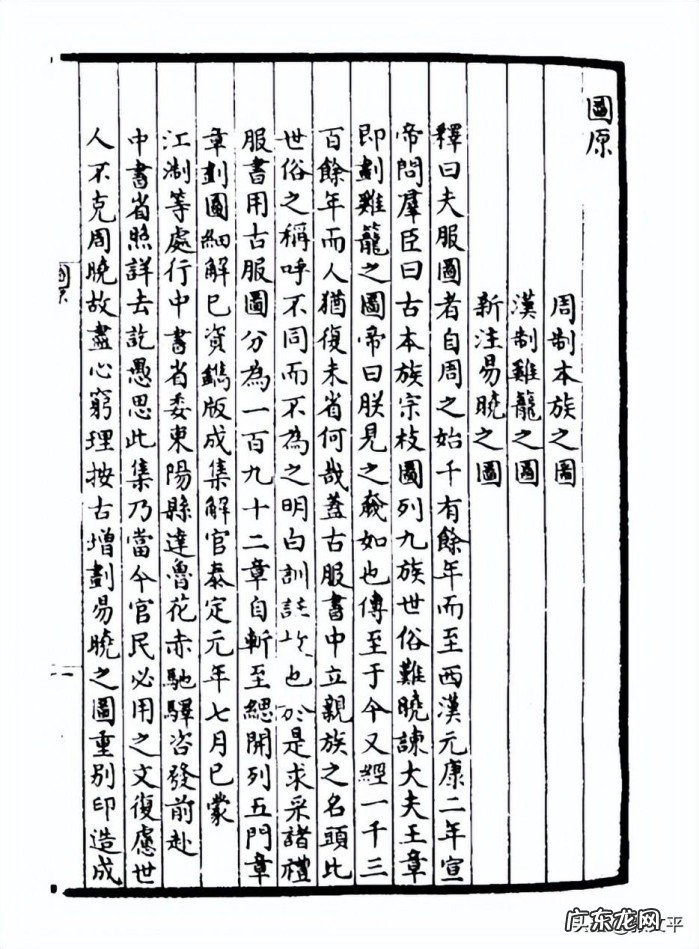 圖原
周制本族之圖
漢制雞籠之圖
新注易曉之圖
釋曰夫服圖者自周之始千有餘年而至西漢元康二年宣
帝問羣臣曰古本族宗枝圖列九族世俗難曉諫大夫王章
即劃雞籠之圖帝曰朕見之 如也傳至于今又經一千三
百餘年而人猶復未省何哉蓋古服書中立親族之名頭比
世俗之稱呼不同而不為之明白訓 故也於是求采諸禮
服書用古服圖分為一百九十二章自斬至緦開列五門章
章劃圖細解已資鐫版成集解官泰定元年七月已蒙
江淛等處行中書省委東陽縣達魯花赤馳驛咨發前赴
中書省照詳去訖愚思此集乃當今官民必用之文復慮世
人不克周曉故盡心窮理按古增劃易曉之圖重別印造成
圖原
一
广东龙网